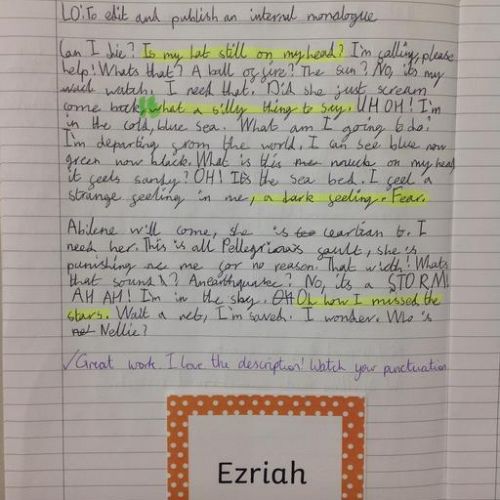 LO: To edit and publish an internal monologue
Can I die? Is my hat still on my head? I'm calling, please
help! Whats that? A ball of fire? The sun? No, its my
watch. I need that. Did she just scream
come back, what a silly thing to say. UH OH! I'm
in the cold, blue sea. What am I going to do?
I'm departing from the world. I can see blue now
green now black. What is this much on my head
it feels sandy? OH! It's the sea bed. I feel a
strange feeling in me, a dark feeling. Fear.
Abilene will come, she is ceartian to. I
need her. This is all Pellegrinas fault, she is
punishing me for no reason. That witch! Whats
that sound? An earthquake? No, its a STORM!
AH AH! I'm in the sky. Oh how I missed the
stars. Wait a net, I'm saved. I wonder. Who is
Nellie?
✓Great work. I love the description! Watch your punctuation
Ezriah